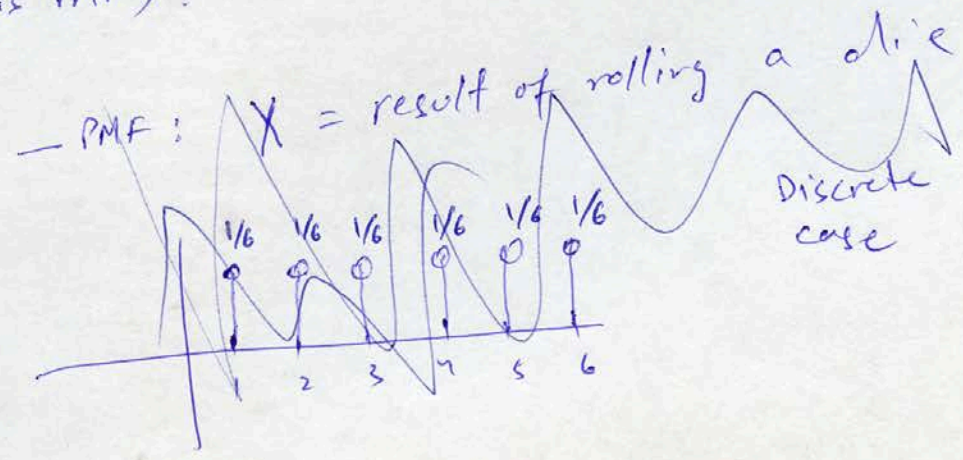 — PMF: X = result of rolling a die
Discrete
case
1/6 1/6 1/6 1/6 1/6 1/6
1 2 3 4 5 6